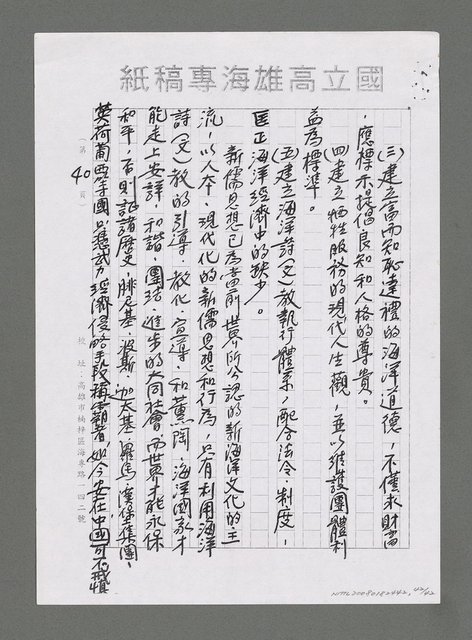 國立高雄海專稿紙
(三)建立富而知恥達禮的海洋道德，不僅求財富
，應標示提倡良知和人格的尊貴。
(四)建立犧牲服務的現代人生觀，並以維護團體利
益為標準。
(五)建立海洋詩(文)教執行體系，配合法令、制度，
匡正海洋經濟中的缺少。
新儒思想已為當前世界所公認的新海洋文化的主
流，以人本、現代化的新儒思想和行為，只有利用海洋
詩(文)教的引導、教化、宣導、和薰陶，海洋國家才
能走上安詳、和諧、團結、進步的大同社會，而世界才能永保
和平，否則証諸歷史，腓尼基、波斯、迦太基、羅馬、漢堡集團、
英荷葡西等國只憑武力經濟侵略手段稱霸者，如今安在中國可不戒慎
(第40頁)
校址：高雄市楠梓區海專路一四二號
NMTL20080182442, 42/42